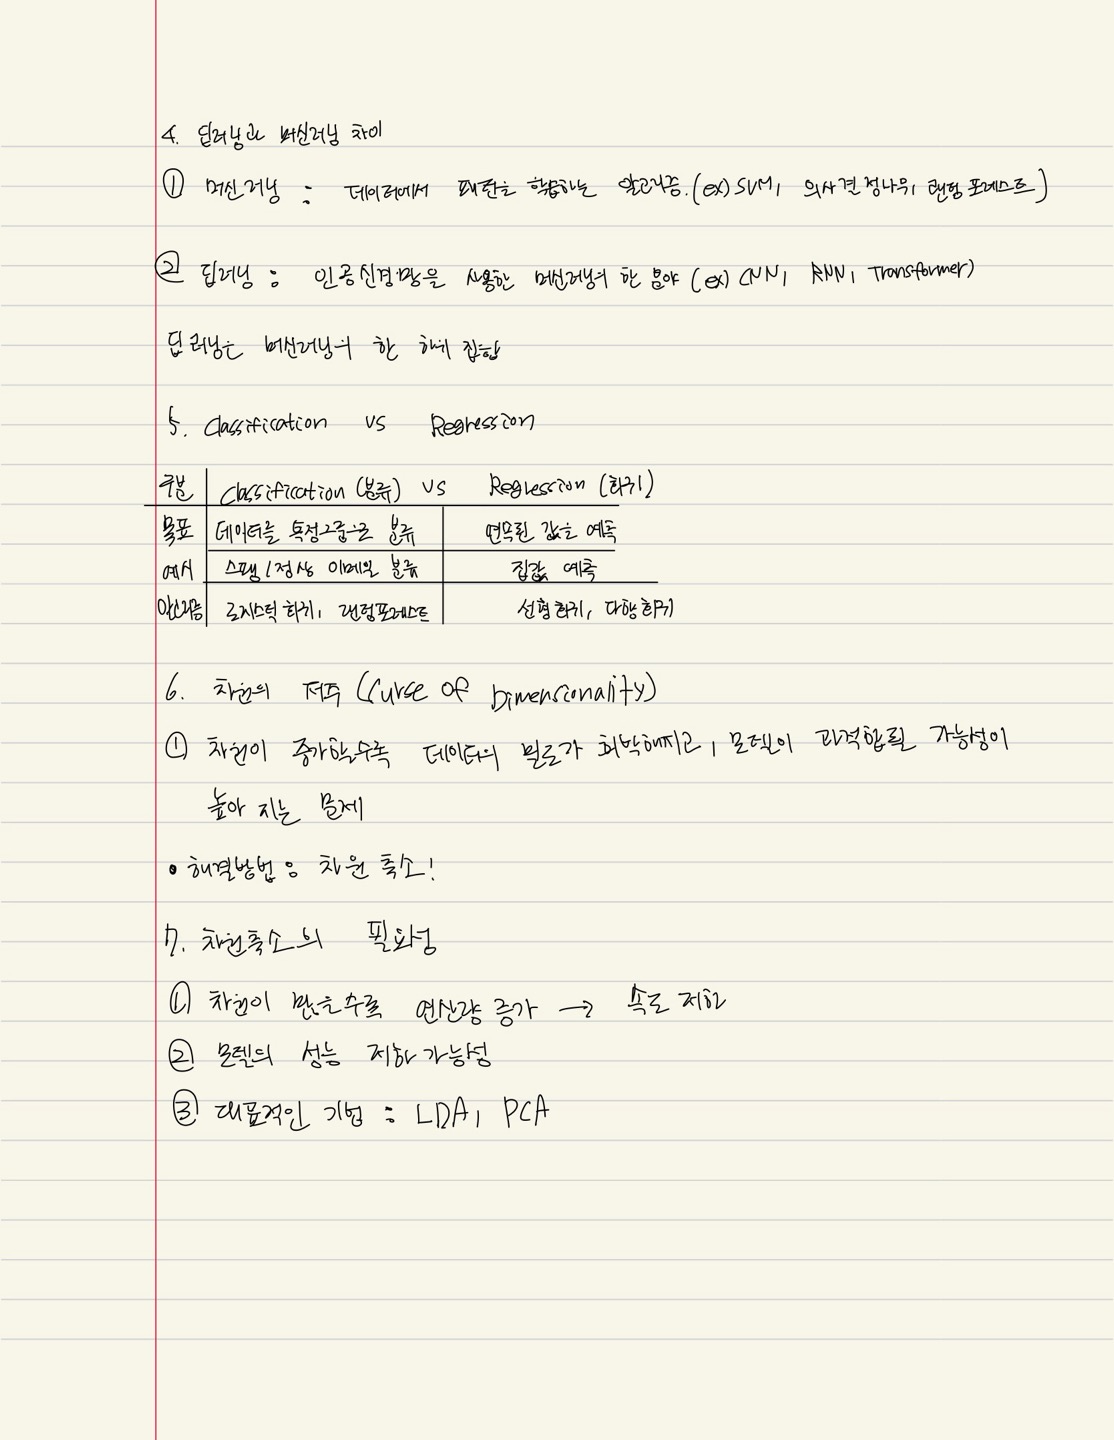 4. 딥러닝과 머신러닝 차이
① 머신러닝 : 데이터에서 패턴을 학습하는 알고리즘. (ex) SVM, 의사결정나무, 랜덤 포레스트)
② 딥러닝 : 인공신경망을 사용한 머신러닝의 한 분야 (ex) CNN, RNN, Transformer)
딥러닝은 머신러닝의 한 하위 집합
5. Classification vs Regression
구분 Classification (분류) vs Regression (회귀)
목표 데이터를 특정그룹으로 분류 연속된 값을 예측
예시 스팸/정상 이메일 분류 집값 예측
알고리즘 로지스틱 회귀, 랜덤포레스트 선형회귀, 다항회귀
6. 차원의 저주 (Curse of Dimensionality)
① 차원이 증가할수록 데이터의 밀도가 희박해지고, 모델이 과적합될 가능성이
높아 지는 문제
• 해결방법 : 차원 축소!
7. 차원축소의 필요성
① 차원이 많을수록 연산량 증가 → 속도 저하
② 모델의 성능 저하 가능성
③ 대표적인 기법 : LDA, PCA